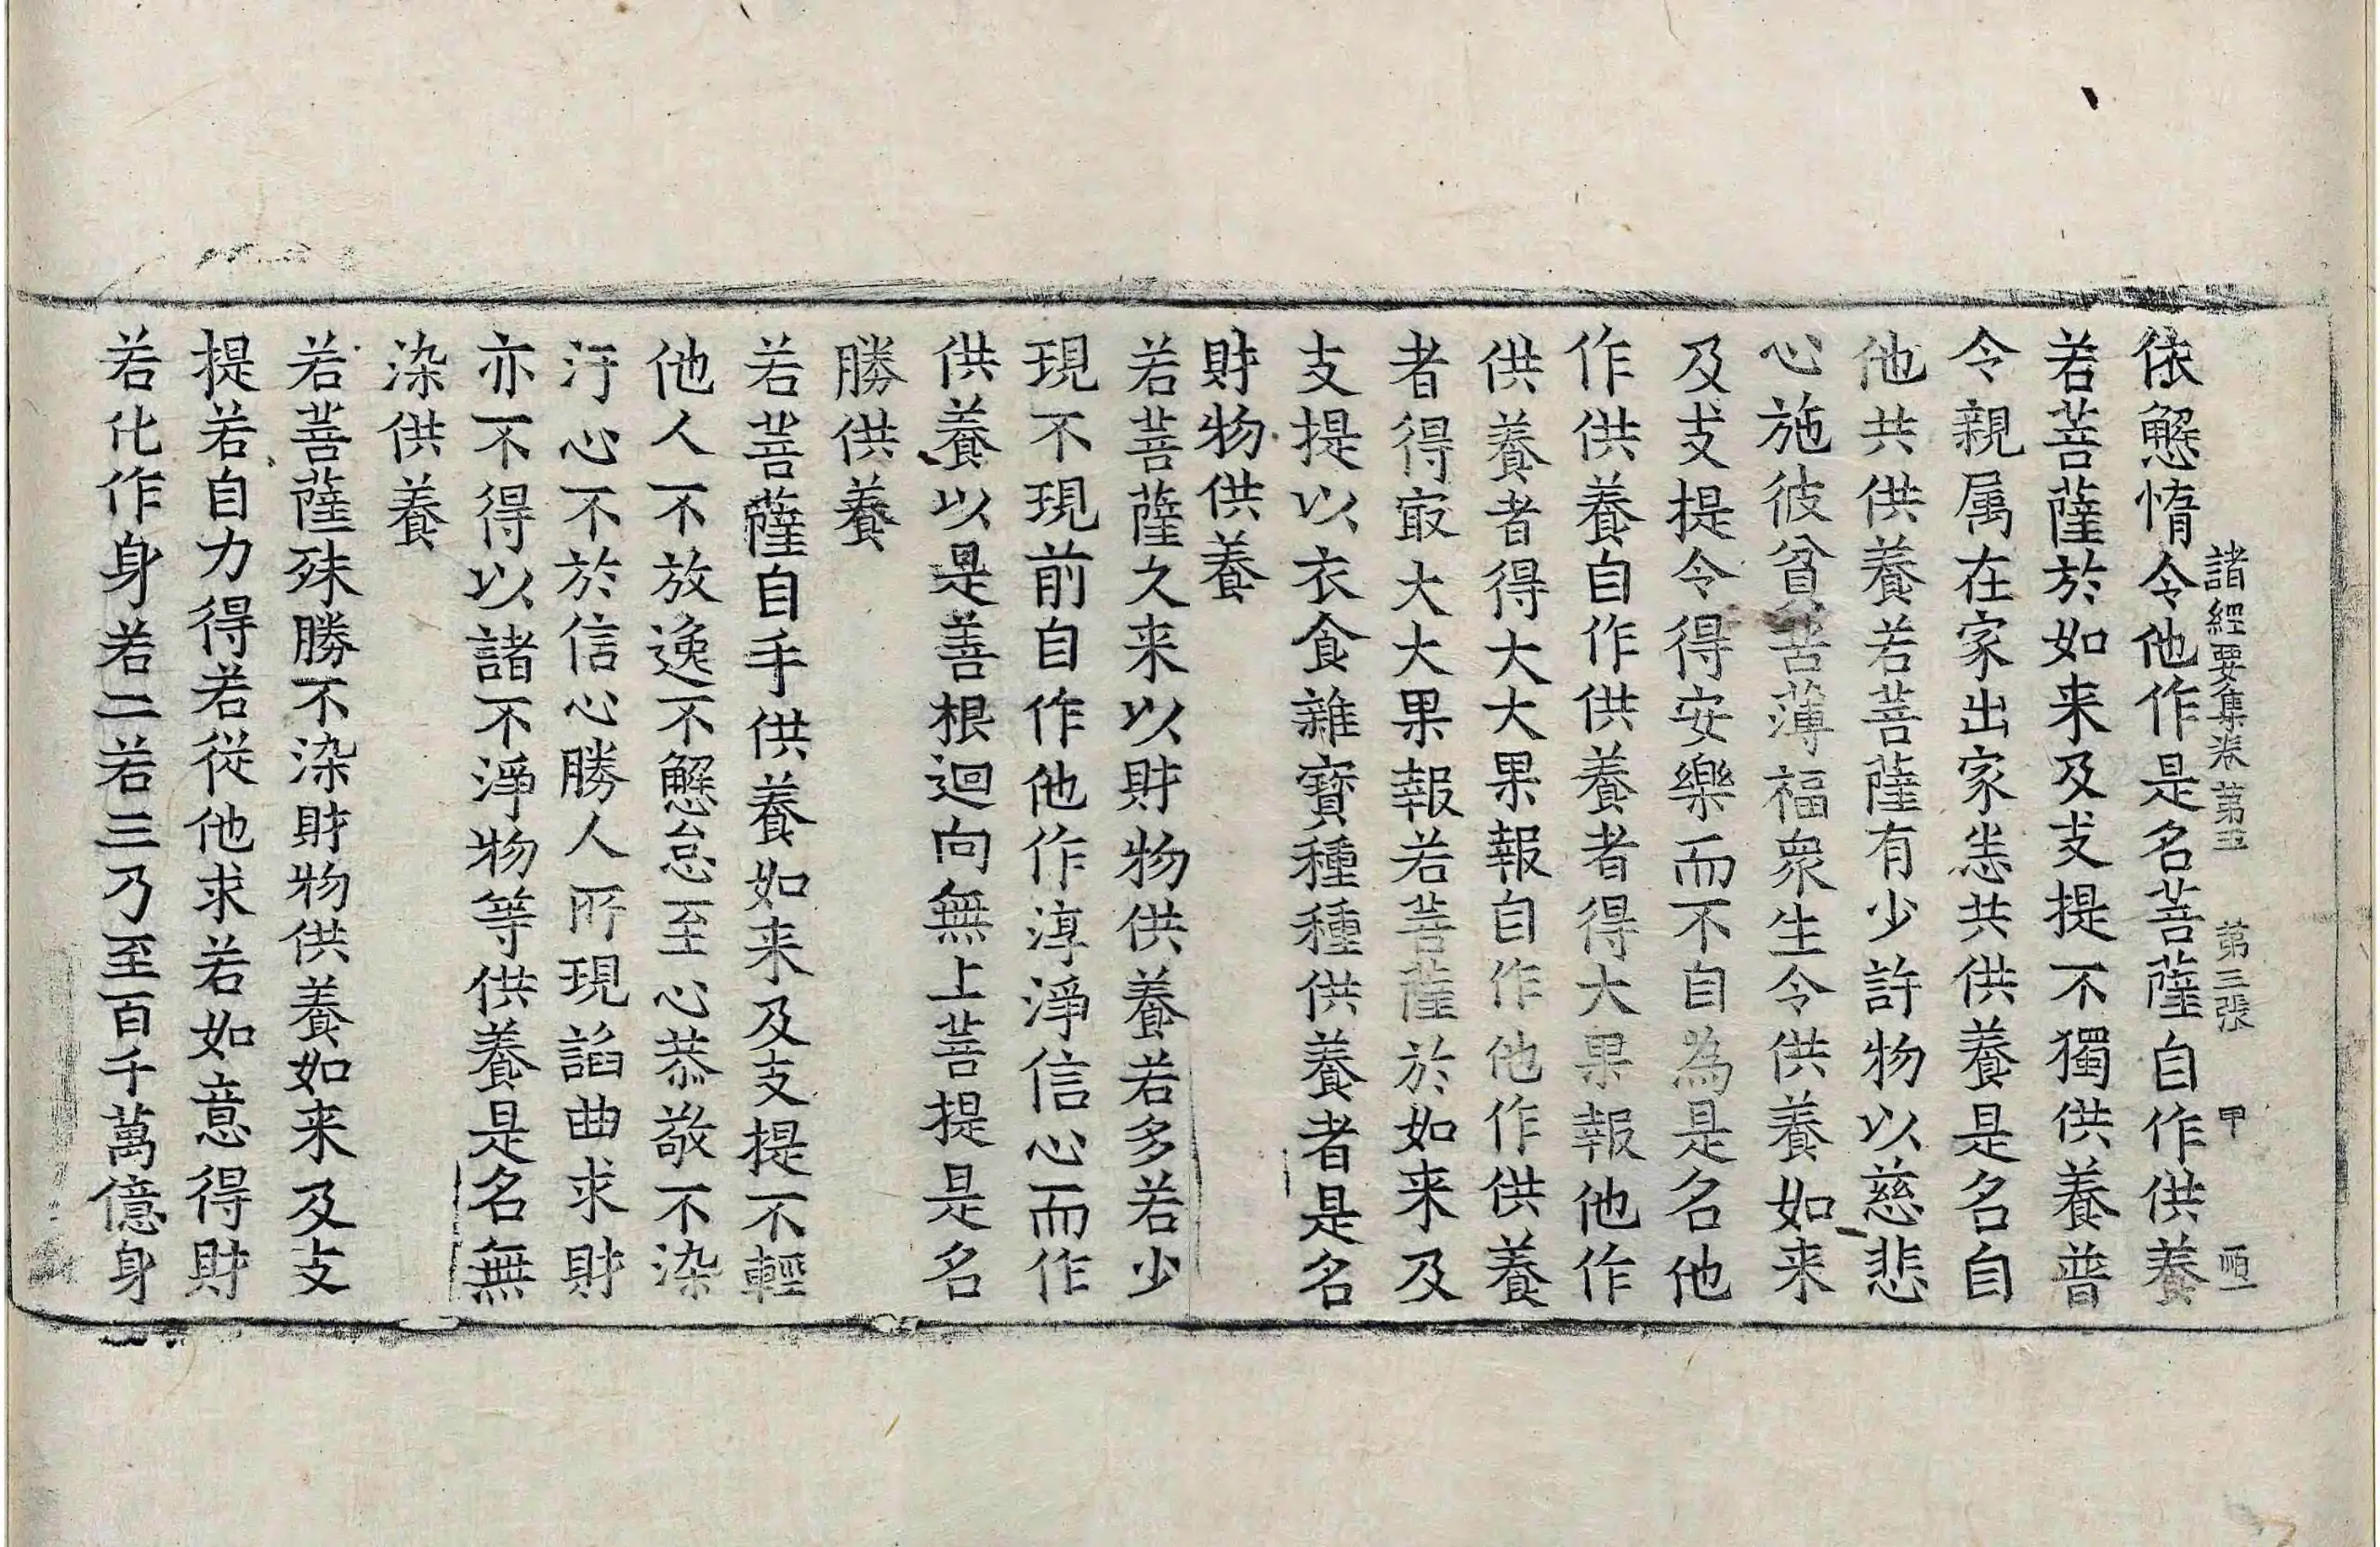 諸經要集卷第五 第三張 甲
依懈惰令他作是名菩薩自作供養
若菩薩於如来及支提不獨供養普
令親属在家出家悉共供養是名自
他共供養若菩薩有少許物以慈悲
心施彼貧苦薄福衆生令供養如来
及支提令得安樂而不自為是名他
作供養自作供養者得大果報他作
供養者得大大果報自作他作供養
者得㝡大大果報若菩薩於如来及
支提以衣食雜寳種種供養者是名
財物供養
若菩薩久来以財物供養若多若少
現不現前自作他作淳淨信心而作
供養以是善根迴向無上菩提是名
勝供養
若菩薩自手供養如来及支提不輕
他人不放逸不懈怠至心恭敬不染
汙心不於信心勝人所現諂曲求財
亦不得以諸不淨物等供養是名無
染供養
若菩薩殊勝不染財物供養如来及支
提若自力得若從他求若如意得財
若化作身若二若三乃至百千萬億身